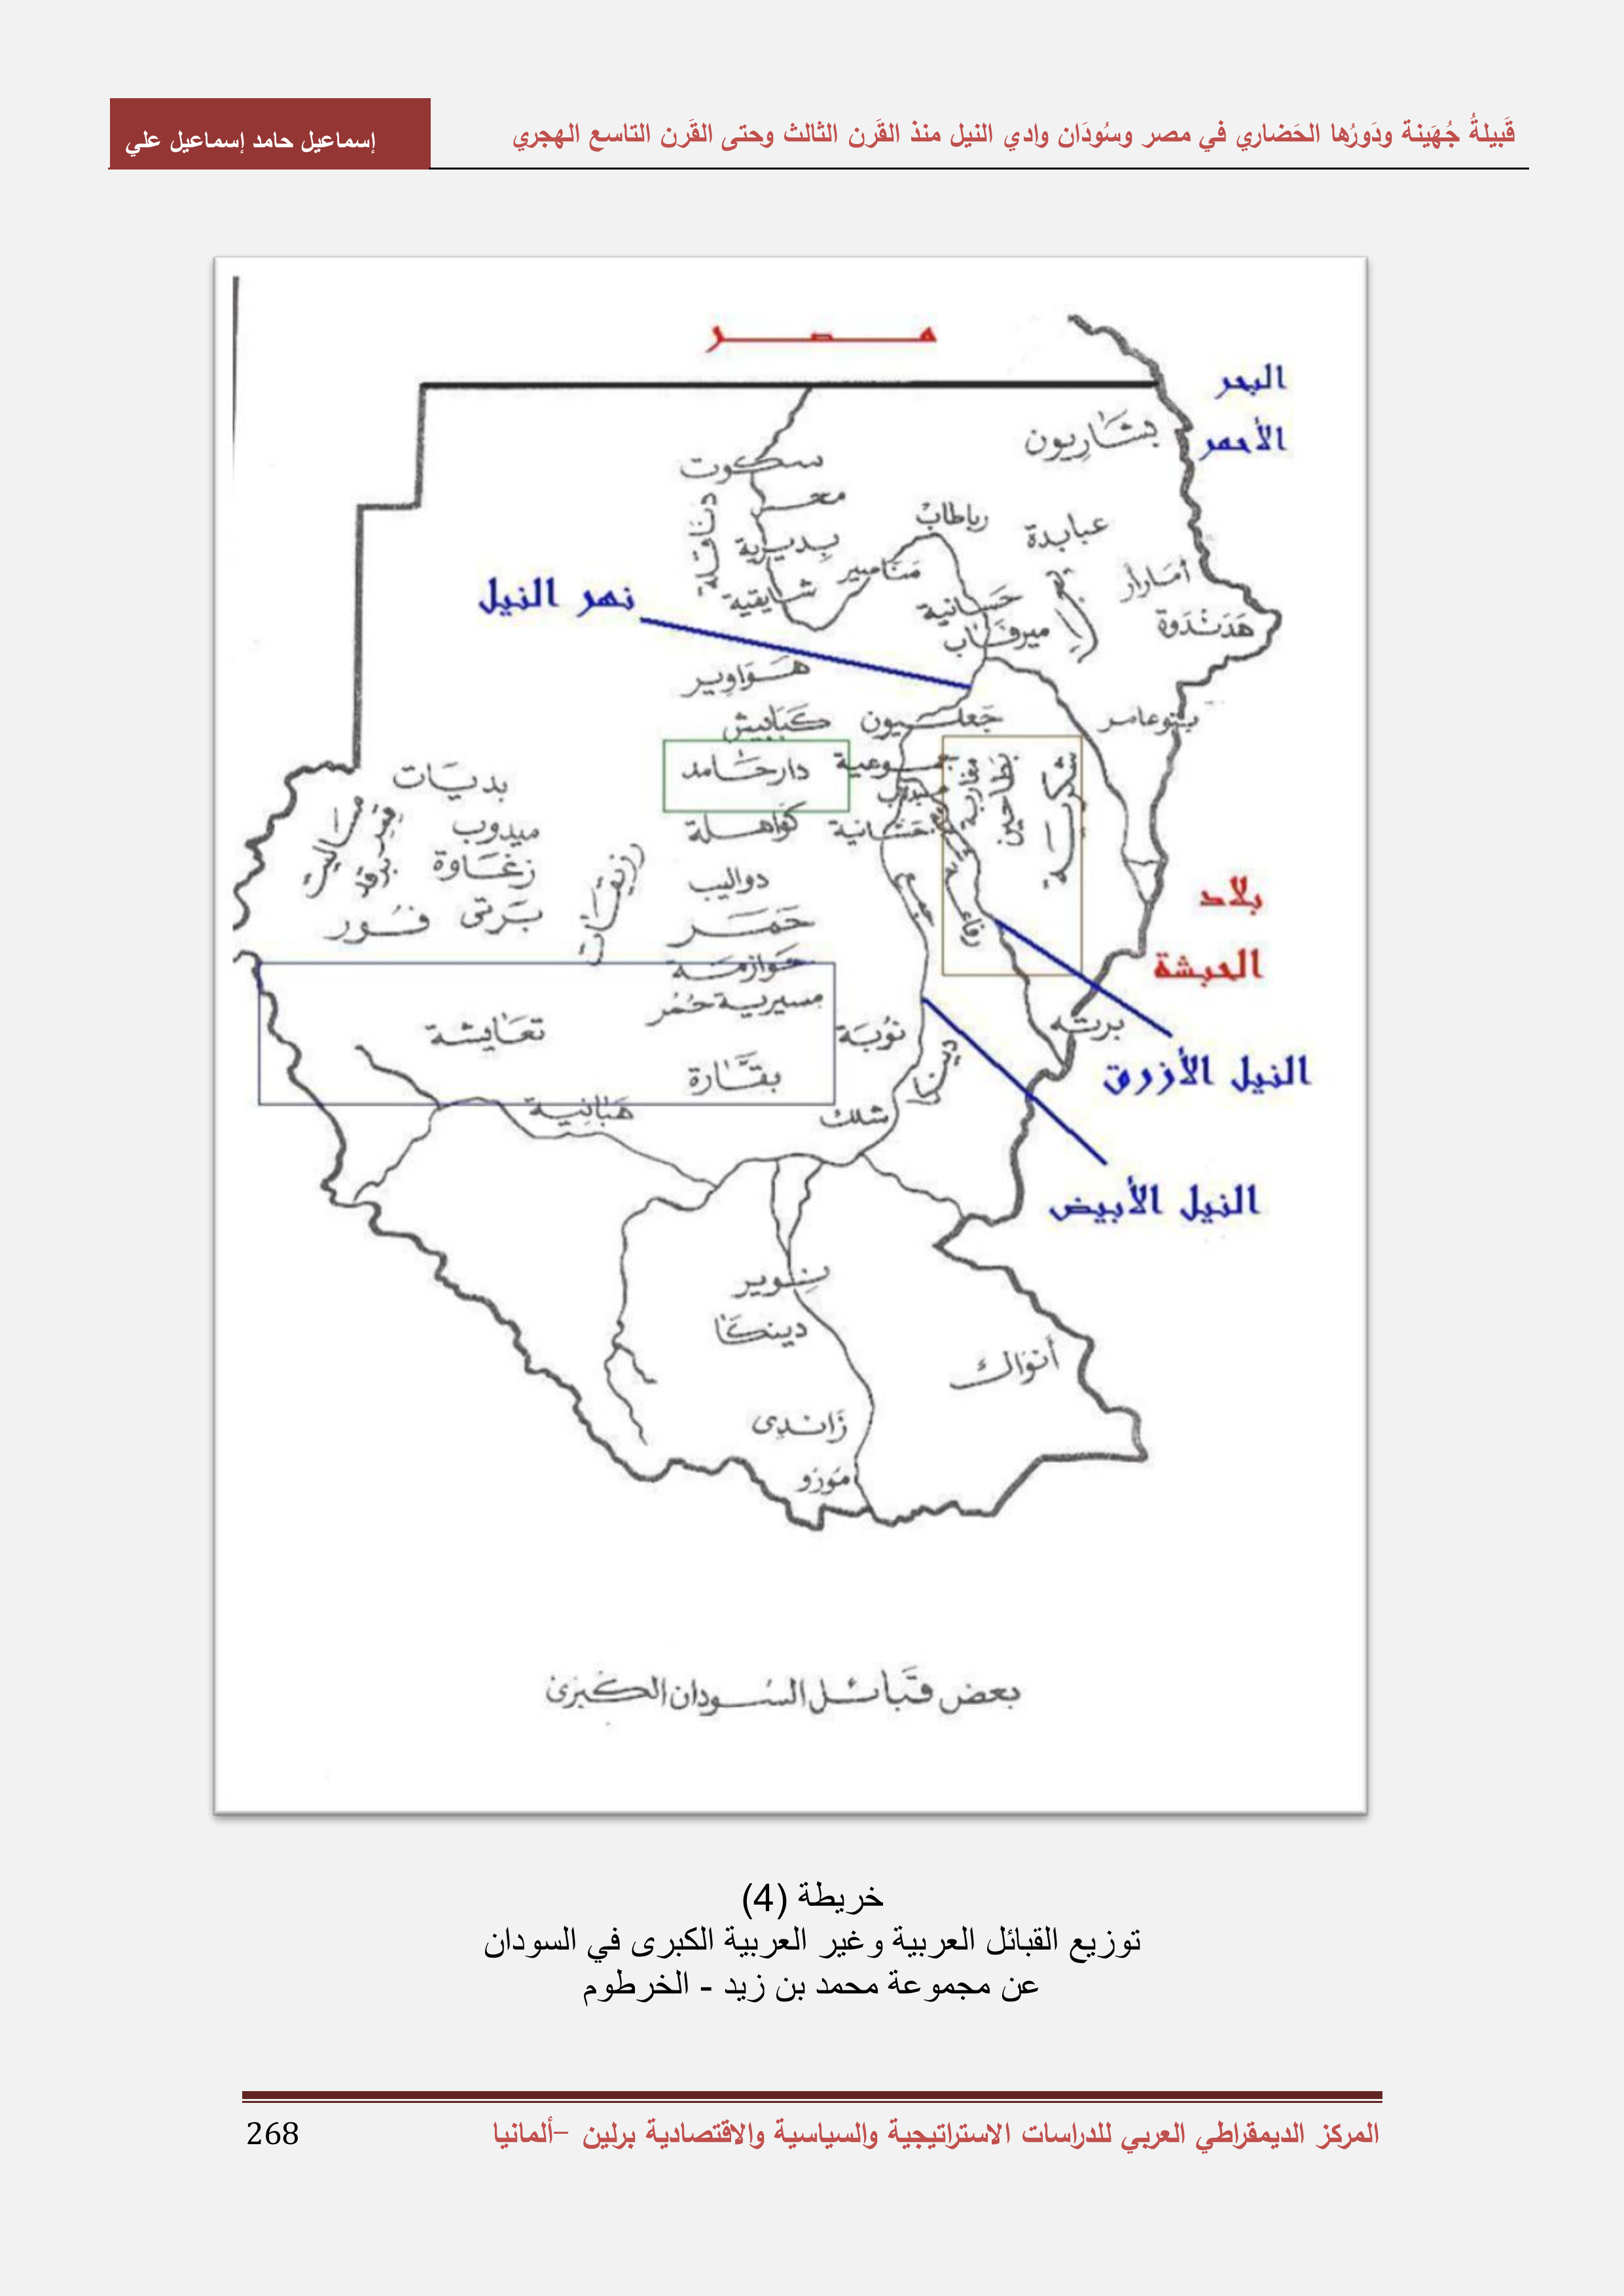 قَبيلةُ جُهَينة ودَورُها الحَضاري في مصر وسُودَان وادي النيل منذ القَرن الثالث وحتى القَرن التاسع الهجري
إسماعيل حامد إسماعيل علي
مصر
البحر
الأحمر
بشاريون
سكوت
محس
دناقلة
بديرية
شايقية
مناصير
رباطاب
عبابدة
أمارأر
هدندوة
حسانية
ميرفاب
نهر النيل
هواوير
كبابيش
جعليون
بنو عامر
دار حامد
جموعية
مغاربة
بطاحين
شكرية
بديات
ميدوب
زغاوة
برتى
فور
مساليت
برقد
رزيقات
كواهلة
حسانية
دواليب
حمر
حوازمة
مسيرية حُمُر
رفاعة
بلاد
الحبشة
تعايشة
بقارة
هبانية
نوبة
دينكا
شلك
برته
النيل الأزرق
النيل الأبيض
نوير
دينكا
أنواك
زاندى
مورو
بعض قبائل السودان الكبرى
خريطة (4)
توزيع القبائل العربية وغير العربية الكبرى في السودان
عن مجموعة محمد بن زيد - الخرطوم
المركز الديمقراطي العربي للدراسات الاستراتيجية والسياسية والاقتصادية برلين –ألمانيا
268